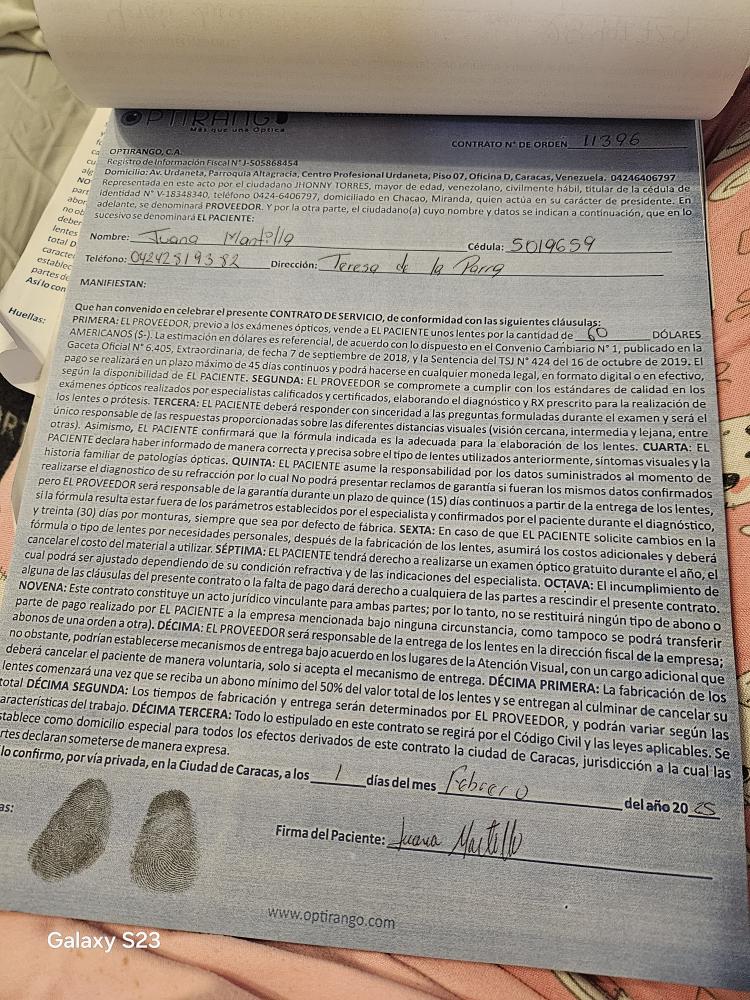 OPTIRANGO
Más que una Óptica
CONTRATO N° DE ORDEN 11396
OPTIRANGO, C.A.
Registro de Información Fiscal N° J-505868454
Domicilio: Av. Urdaneta, Parroquia Altagracia, Centro Profesional Urdaneta, Piso 07, Oficina D, Caracas, Venezuela. 04246406797
Representada en este acto por el ciudadano JHONNY TORRES, mayor de edad, venezolano, civilmente hábil, titular de la cédula de
identidad N° V-18348340, teléfono 0424-6406797, domiciliado en Chacao, Miranda, quien actúa en su carácter de presidente. En
adelante, se denominará PROVEEDOR. Y por la otra parte, el ciudadano(a) cuyo nombre y datos se indican a continuación, que en lo
sucesivo se denominará EL PACIENTE:
Nombre: Juana Mantilla Cédula: 5019659
Teléfono: 04242819382 Dirección: Teresa de la Parra
MANIFIESTAN:
Que han convenido en celebrar el presente CONTRATO DE SERVICIO, de conformidad con las siguientes cláusulas:
PRIMERA: EL PROVEEDOR, previo a los exámenes ópticos, vende a EL PACIENTE unos lentes por la cantidad de 60 DÓLARES
AMERICANOS ($-). La estimación en dólares es referencial, de acuerdo con lo dispuesto en el Convenio Cambiario N° 1, publicado en la
Gaceta Oficial N° 6.405, Extraordinaria, de fecha 7 de septiembre de 2018, y la Sentencia del TSJ N° 424 del 16 de octubre de 2019. El
pago se realizará en un plazo máximo de 45 días continuos y podrá hacerse en cualquier moneda legal, en formato digital o en efectivo,
según la disponibilidad de EL PACIENTE. SEGUNDA: EL PROVEEDOR se compromete a cumplir con los estándares de calidad en los
exámenes ópticos realizados por especialistas calificados y certificados, elaborando el diagnóstico y RX prescrito para la realización de
los lentes o prótesis. TERCERA: EL PACIENTE deberá responder con sinceridad a las preguntas formuladas durante el examen y será el
único responsable de las respuestas proporcionadas sobre las diferentes distancias visuales (visión cercana, intermedia y lejana, entre
otras). Asimismo, EL PACIENTE confirmará que la fórmula indicada es la adecuada para la elaboración de los lentes. CUARTA: EL
PACIENTE declara haber informado de manera correcta y precisa sobre el tipo de lentes utilizados anteriormente, síntomas visuales y la
historia familiar de patologías ópticas. QUINTA: EL PACIENTE asume la responsabilidad por los datos suministrados al momento de
realizarse el diagnostico de su refracción por lo cual No podrá presentar reclamos de garantía si fueran los mismos datos confirmados
pero EL PROVEEDOR será responsable de la garantía durante un plazo de quince (15) días continuos a partir de la entrega de los lentes,
si la fórmula resulta estar fuera de los parámetros establecidos por el especialista y confirmados por el paciente durante el diagnóstico,
y treinta (30) días por monturas, siempre que sea por defecto de fábrica. SEXTA: En caso de que EL PACIENTE solicite cambios en la
fórmula o tipo de lentes por necesidades personales, después de la fabricación de los lentes, asumirá los costos adicionales y deberá
cancelar el costo del material a utilizar. SÉPTIMA: EL PACIENTE tendrá derecho a realizarse un examen óptico gratuito durante el año, el
cual podrá ser ajustado dependiendo de su condición refractiva y de las indicaciones del especialista. OCTAVA: El incumplimiento de
alguna de las cláusulas del presente contrato o la falta de pago dará derecho a cualquiera de las partes a rescindir el presente contrato.
NOVENA: Este contrato constituye un acto jurídico vinculante para ambas partes; por lo tanto, no se restituirá ningún tipo de abono o
parte de pago realizado por EL PACIENTE a la empresa mencionada bajo ninguna circunstancia, como tampoco se podrá transferir
abonos de una orden a otra). DÉCIMA: EL PROVEEDOR será responsable de la entrega de los lentes en la dirección fiscal de la empresa;
no obstante, podrían establecerse mecanismos de entrega bajo acuerdo en los lugares de la Atención Visual, con un cargo adicional que
deberá cancelar el paciente de manera voluntaria, solo si acepta el mecanismo de entrega. DÉCIMA PRIMERA: La fabricación de los
lentes comenzará una vez que se reciba un abono mínimo del 50% del valor total de los lentes y se entregan al culminar de cancelar su
total DÉCIMA SEGUNDA: Los tiempos de fabricación y entrega serán determinados por EL PROVEEDOR, y podrán variar según las
características del trabajo. DÉCIMA TERCERA: Todo lo estipulado en este contrato se regirá por el Código Civil y las leyes aplicables. Se
stablece como domicilio especial para todos los efectos derivados de este contrato la ciudad de Caracas, jurisdicción a la cual las
rtes declaran someterse de manera expresa.
lo confirmo, por vía privada, en la Ciudad de Caracas, a los 1 días del mes Febrero del año 20 25
as:
Firma del Paciente: Juana Mantilla
www.optirango.com
Huellas:
Galaxy S23